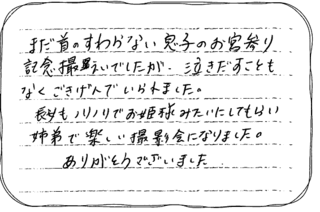 まだ首のすわらない息子のお宮参り
記念撮影でしたが、泣きだすことも
なくごきげんでいられました。
長女もノリノリでお姫様みたいにしてもらい
姉弟で楽しい撮影会になりました。
ありがとうございました